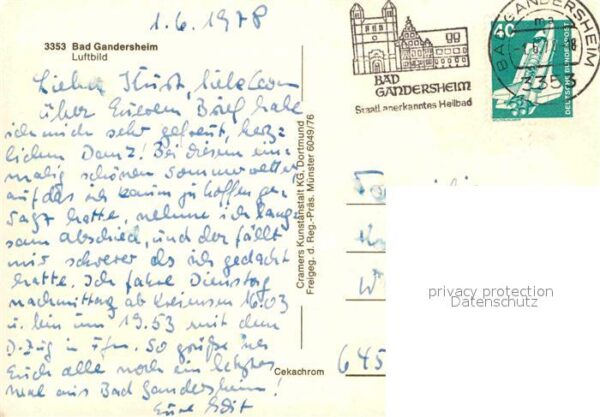 1.6.1978
3353 Bad Gandersheim
Luftbild
Lieber Kurt, liebe
über Eueren Brief habe
ich mich sehr gefreut, herz-
lichen Dank! Bei diesem ein-
malig schönen Sommerwetter
auf das ich kaum zu hoffen ge-
wagt hatte, nehme ich lang-
sam Abschied, und der fällt
mir schwerer als ich gedacht
hatte. Ich fahre Dienstag
nachmittag ab Kreiensen 16.03
u. bin um 19.53 mit dem
D-Zug in Ffm. So grüße ich
Euch alle noch ein letztes
mal aus Bad Gandersheim!
Eure Edit
Cramers Kunstanstalt KG, Dortmund
Freigeg. d. Reg.-Präs. Münster 6049/76
Cekachrom
BAD
GANDERSHEIM
Staatl. anerkanntes Heilbad
BAD GANDERSHEIM
3353
40
DEUTSCHE BUNDESPOST
645
privacy protection
Datenschutz